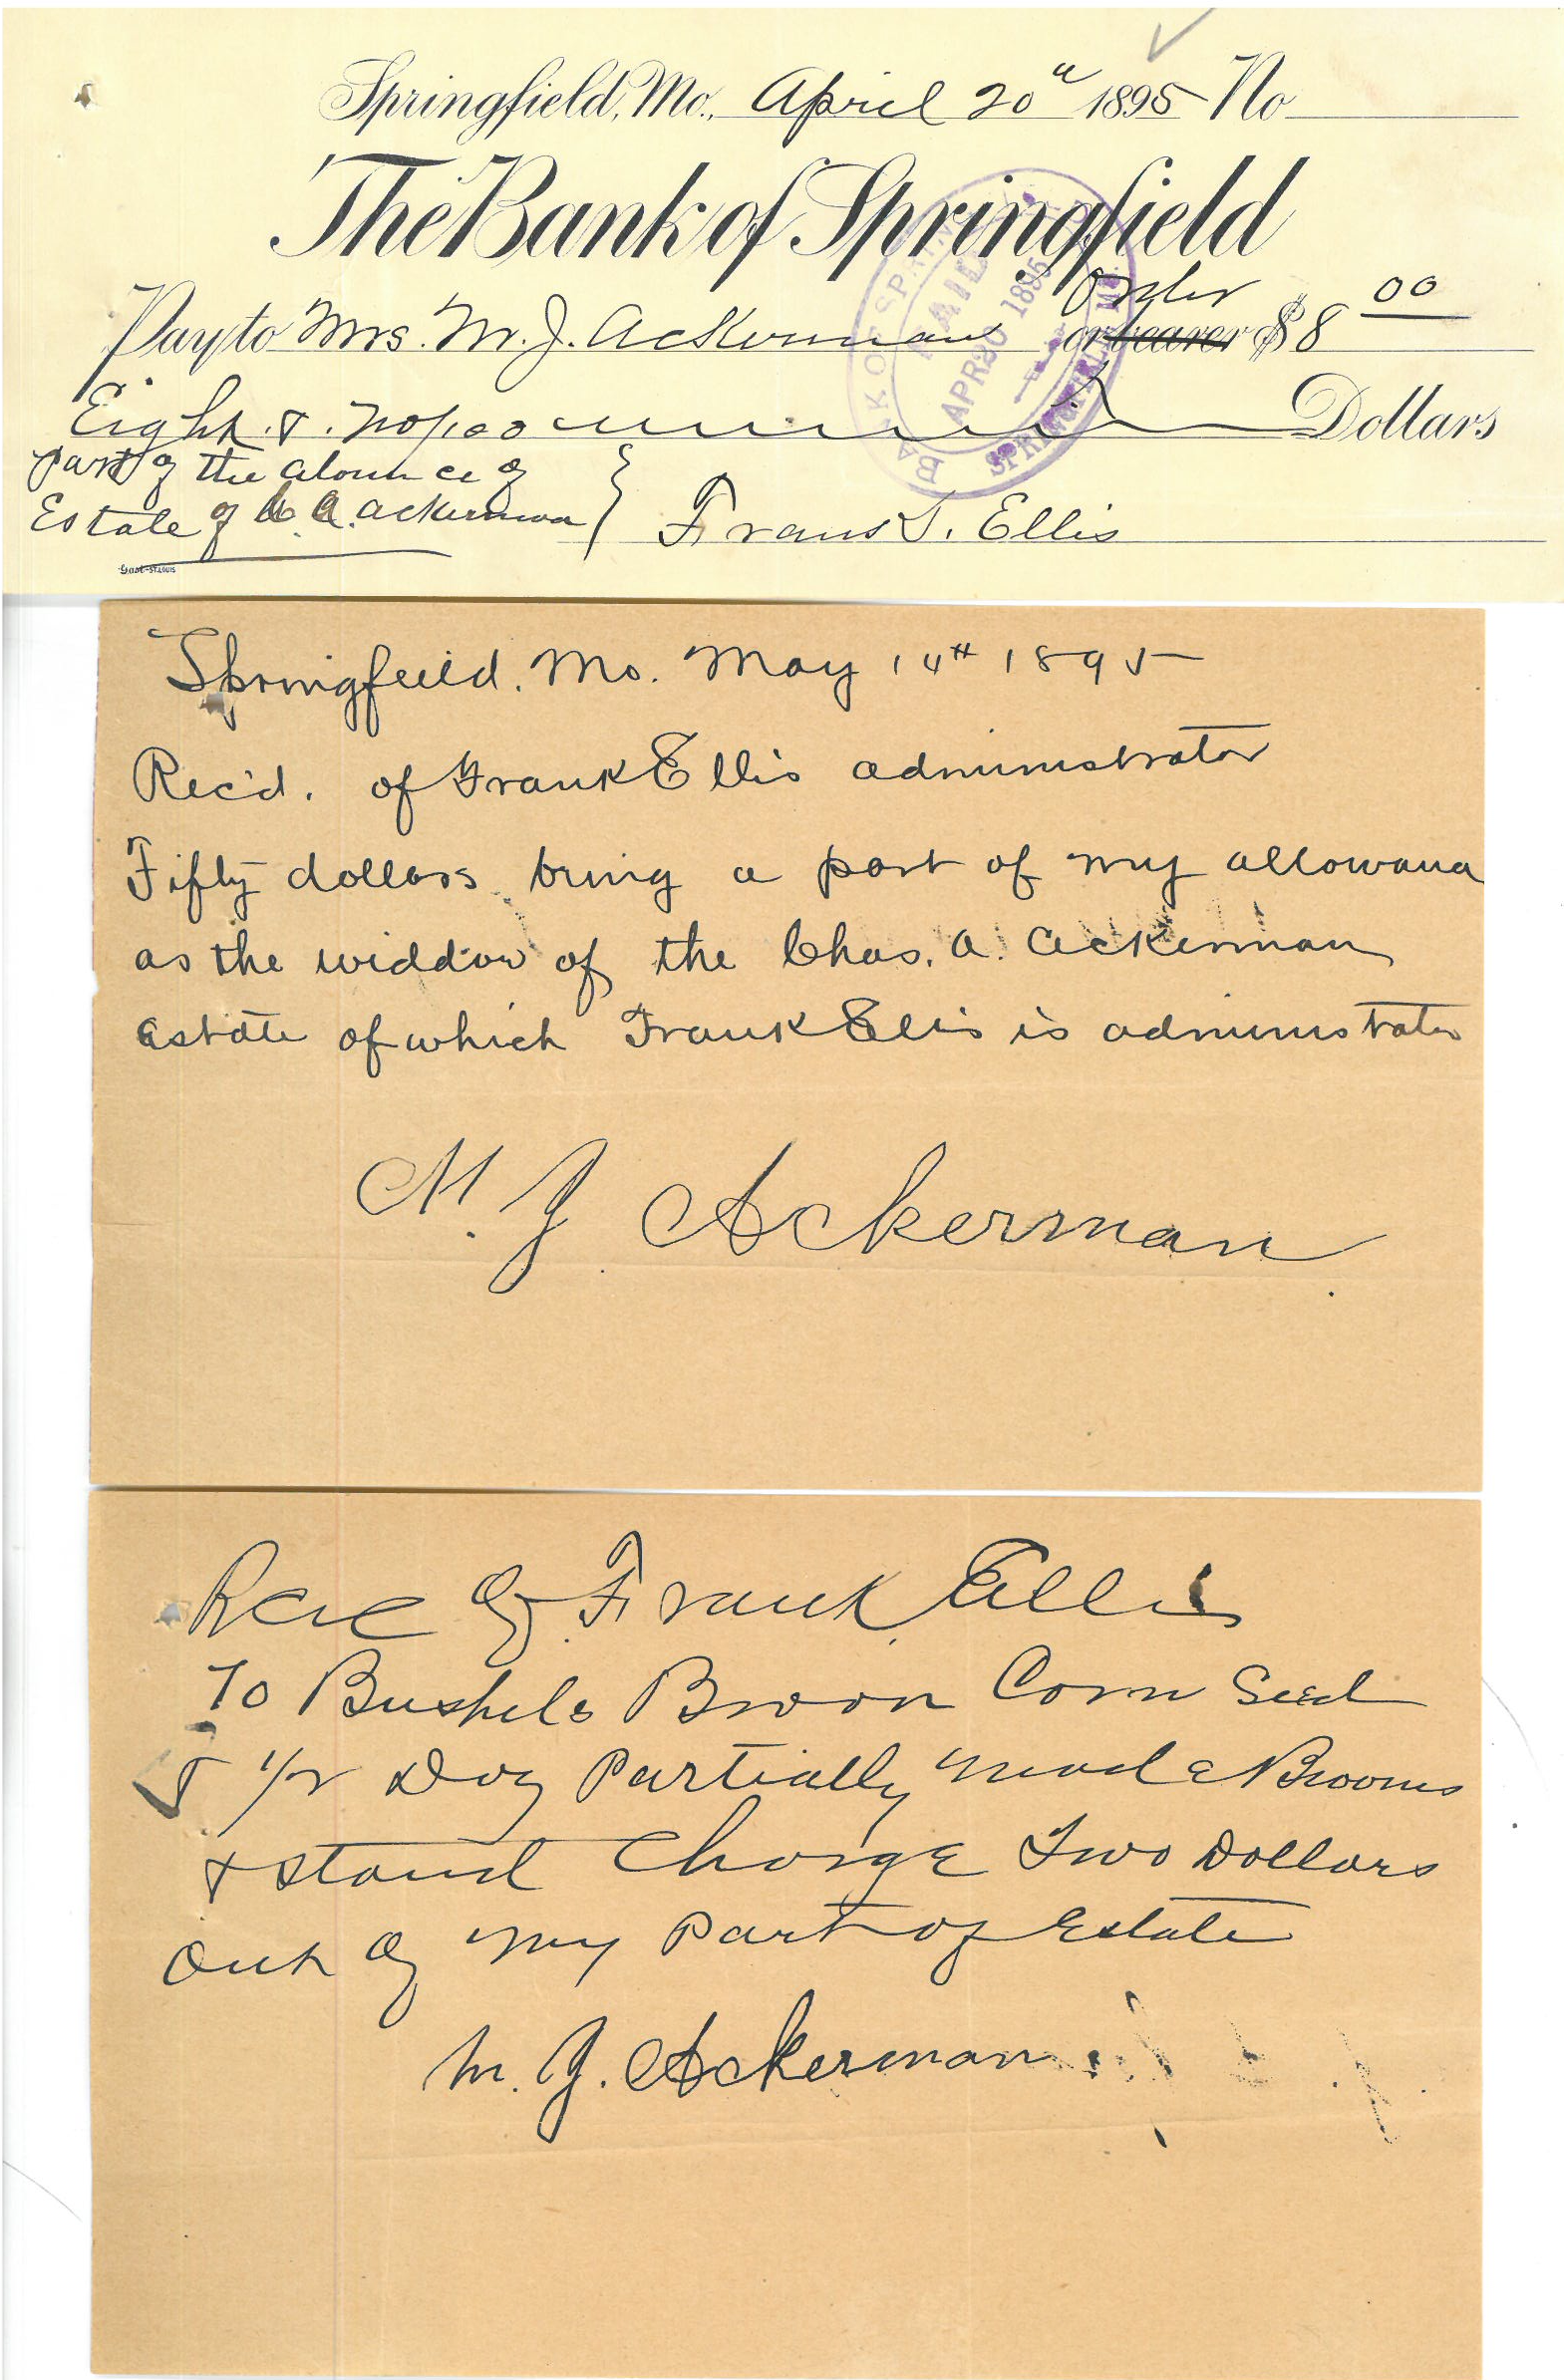 Springfield, Mo., April 20th 1895 No
The Bank of Springfield
Pay to Mrs. M. J. Ackerman or bearer order $8 00
Eight & no/100 Dollars
part of the alounce of
Estate of C. A. Ackerman
Frank T. Ellis
BANK OF SPRINGFIELD
PAID
APR 20 1895
SPRINGFIELD, MO.
Gast-St. Louis
Springfeild. Mo. May 14th 1895
Rec'd. of Frank Ellis administrator
Fifty dollars being a part of my allowance
as the widdow of the Chas. A. Ackerman
Estate of which Frank Ellis is administrator
M. J Ackerman
Rece of Frank Ellis
70 Bushels Broon Corn Seed
5 1/2 Doz Partially made Brooms
& stand Charge Two Dollars
out of my Part of Estate
M. J. Ackerman